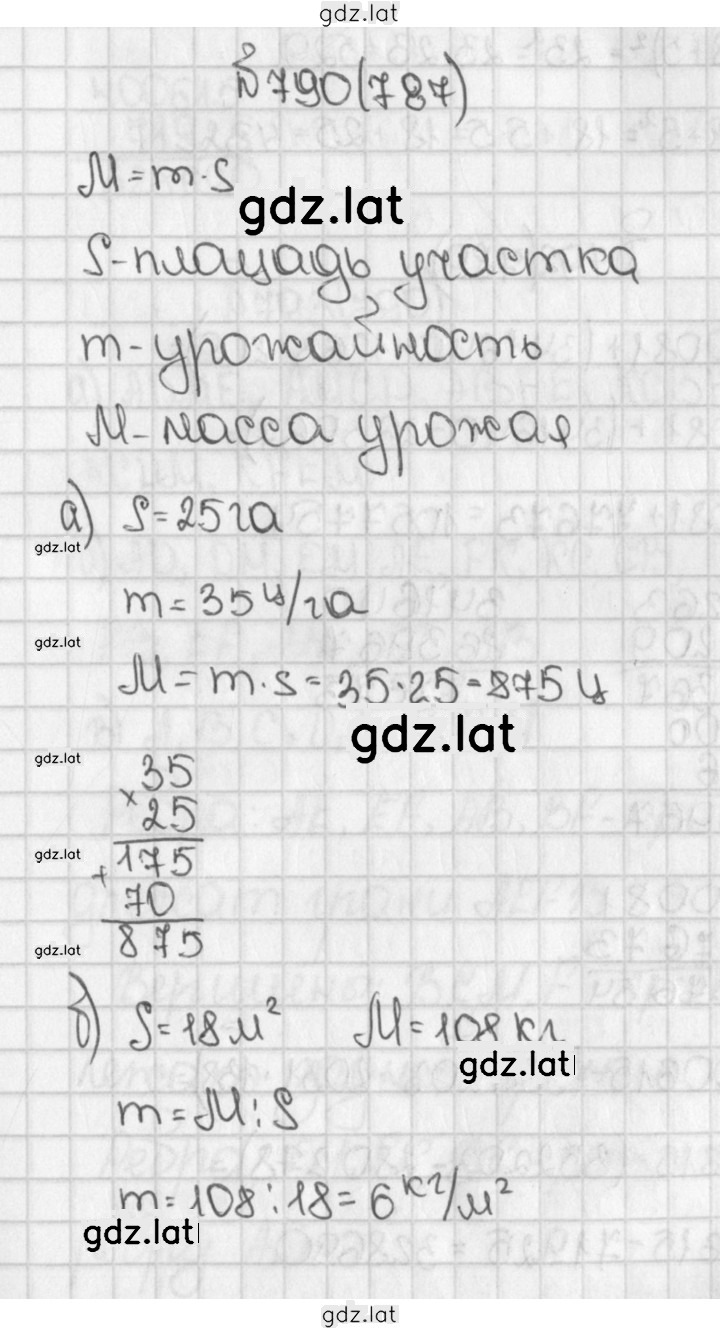 gdz.lat
№790(787)
M=m·S
gdz.lat
S-площадь участка
m-урожайность
M-масса урожая
а) S=25га
gdz.lat
m=35ц/га
gdz.lat
M=m·s=35·25=875ц
gdz.lat
gdz.lat
35
×25
gdz.lat
+175
70
875
gdz.lat
б) S=18м² M=108кг
gdz.lat
m=M:S
m=108:18=6кг/м²
gdz.lat
gdz.lat